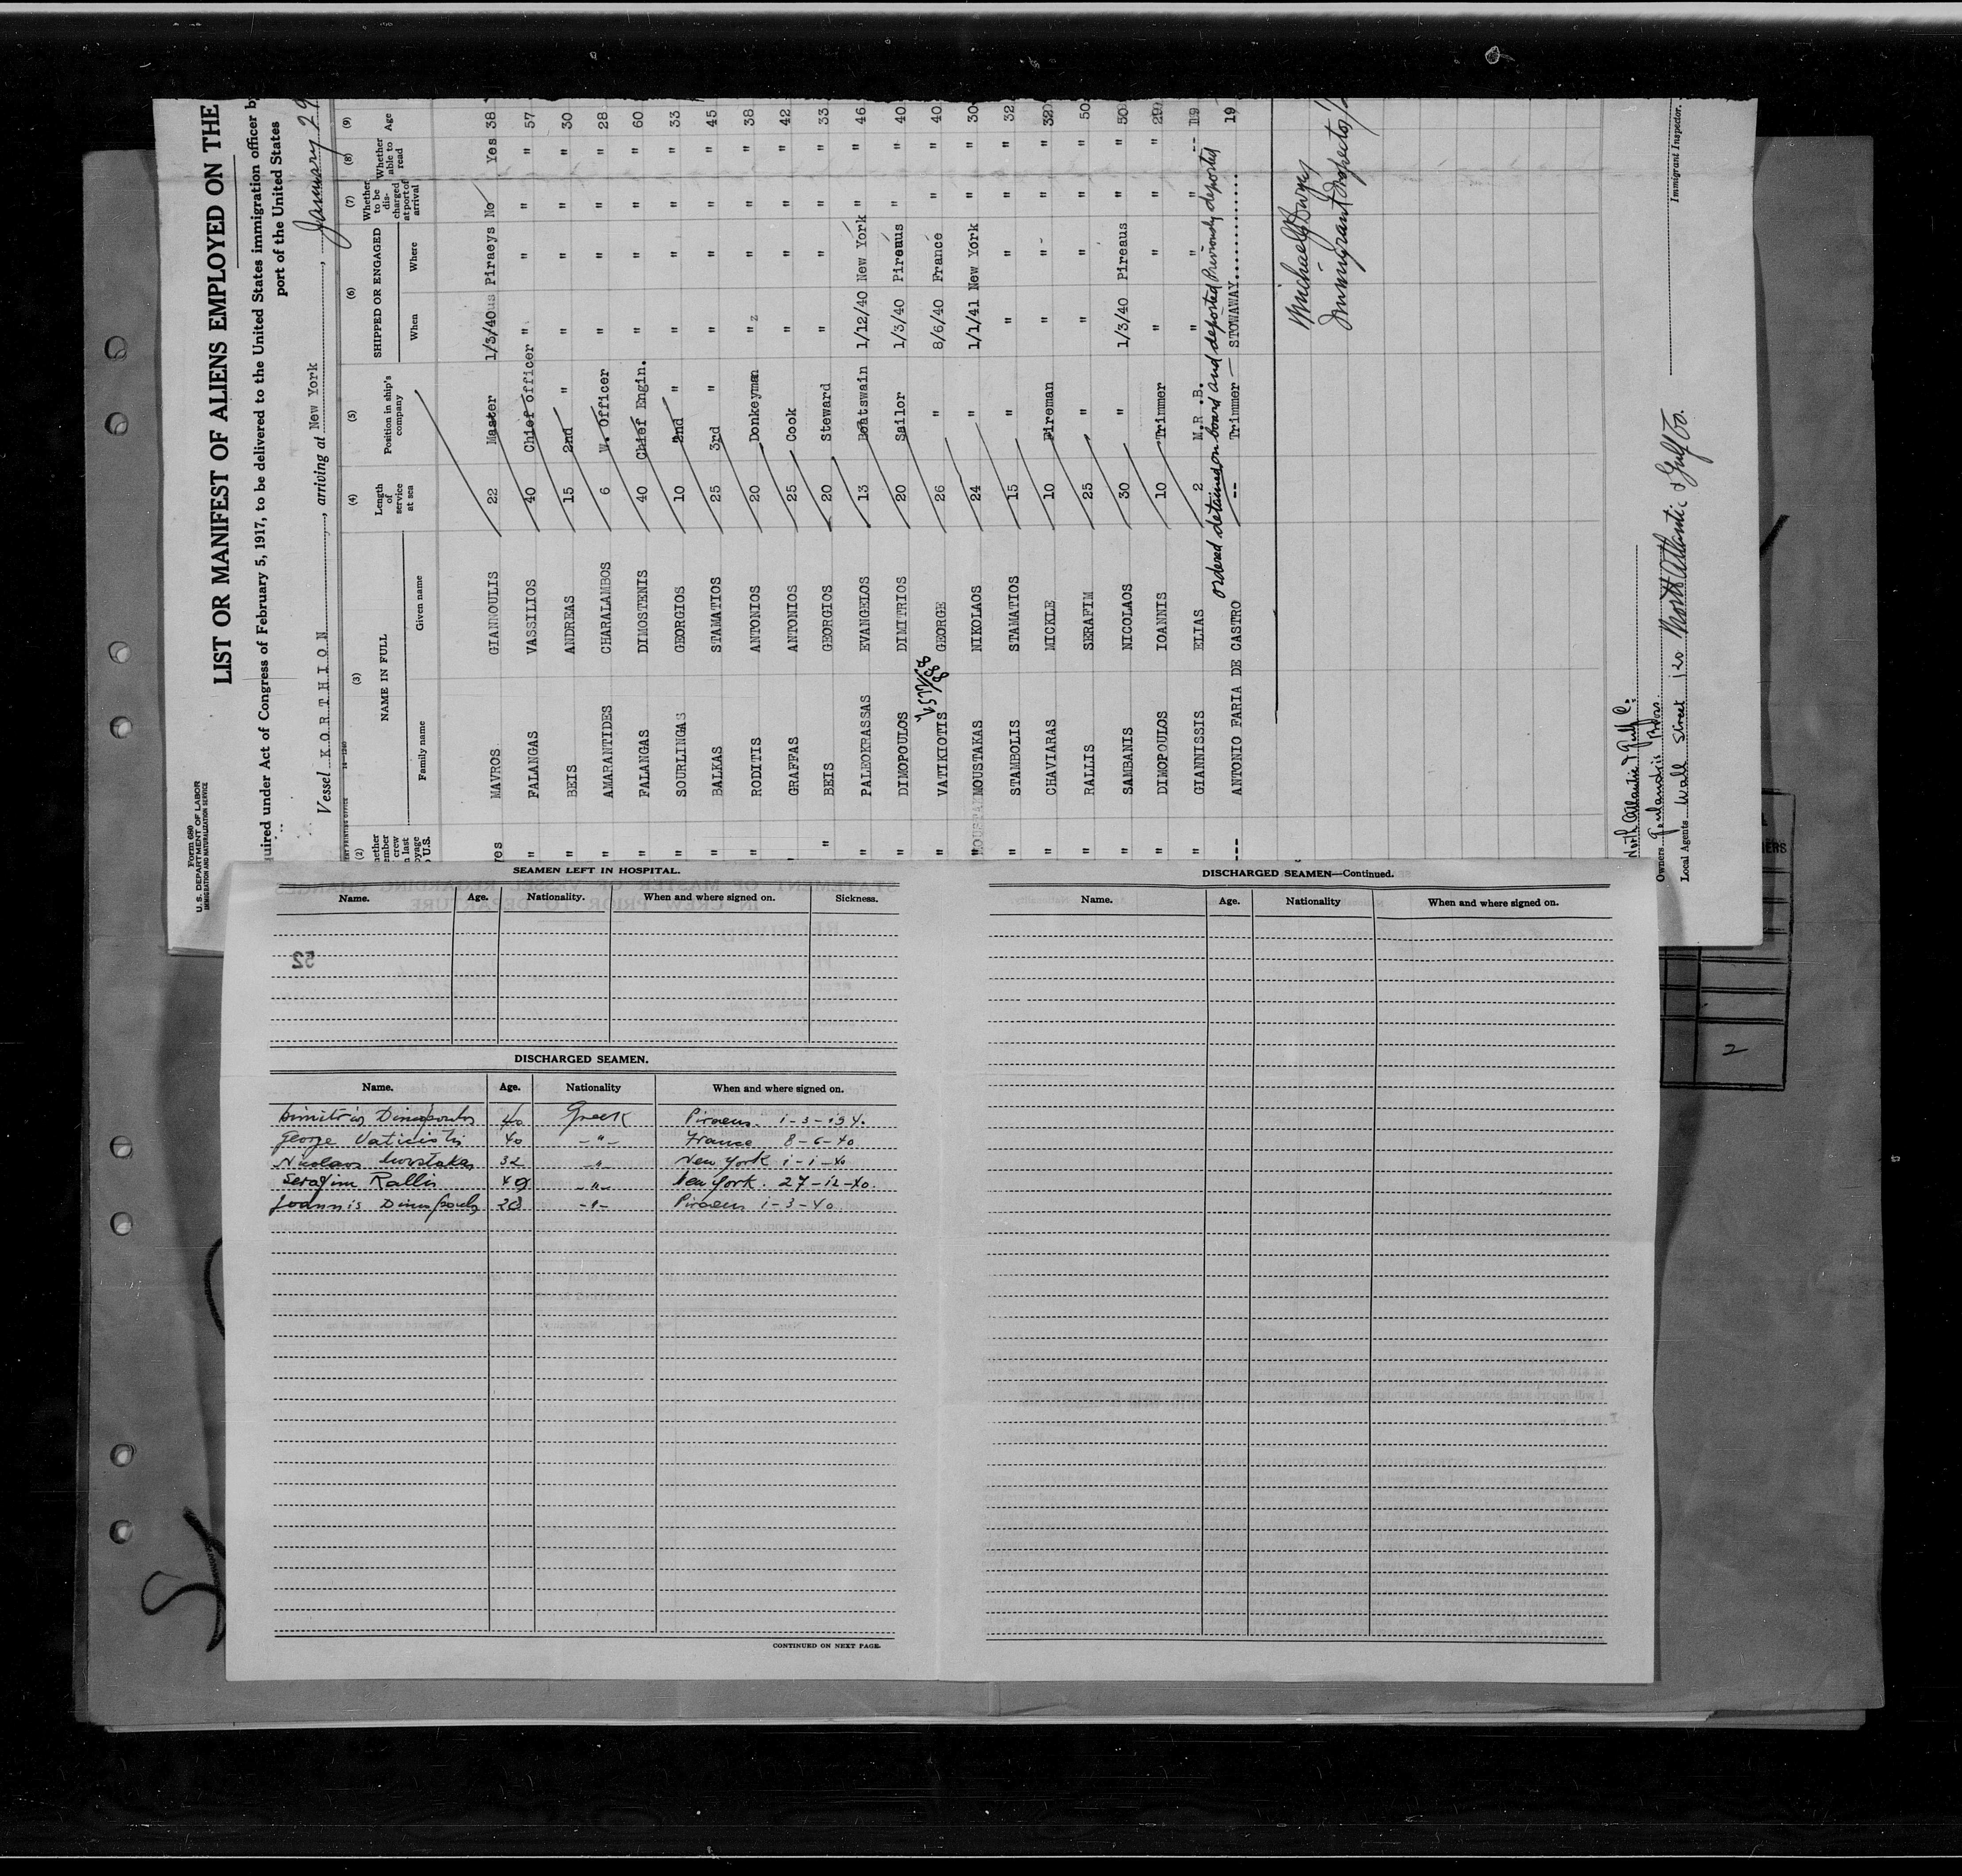 Form 680
U. S. DEPARTMENT OF LABOR
IMMIGRATION AND NATURALIZATION SERVICE
LIST OR MANIFEST OF ALIENS EMPLOYED ON THE
quired under Act of Congress of February 5, 1917, to be delivered to the United States immigration officer by
port of the United States
Vessel KORTHION, arriving at New York, January 29
(2) (3) (4) (5) (6) (7) (8) (9)
NAME IN FULL
Family name Given name
Length of service at sea
Position in ship's company
SHIPPED OR ENGAGED
When Where
Whether to be discharged at port of arrival
Whether able to read
Age
yes MAVROS GIANNOULIS 22 Master 1/3/40 Piraeys No Yes 38
" FALANGAS VASSILIOS 40 Chief Officer " " " " 57
" BEIS ANDREAS 15 2nd " " " " " 30
" AMARANTIDES CHARALAMBOS 6 W. Officer " " " " 28
" FALANGAS DIMOSTENIS 40 Chief Engin. " " " " 60
" SOURLINGAS GEORGIOS 10 2nd " " " " " 33
" BALKAS STAMATIOS 25 3rd " " " " " 45
" RODITIS ANTONIOS 20 Donkeyman " " " " 38
GRAFFAS ANTONIOS 25 Cook " " " " 42
" BEIS GEORGIOS 20 Steward " " " " 33
" PALEOKRASSAS EVANGELOS 13 Boatswain 1/12/40 New York " " 46
" DIMOPOULOS DIMITRIOS 20 Sailor 1/3/40 Pireaus " " 40
" VATIKIOTIS GEORGE 26 " 8/6/40 France " " 40
" MOUSTAKAS NIKOLAOS 24 " 1/1/41 New York " " 30
" STAMBOLIS STAMATIOS 15 " " " " " 32
" CHAVIARAS MICKLE 10 Fireman " " " " 32
" RALLIS SERAFIM 25 " " " " " 50
" SAMBANIS NICOLAOS 30 " 1/3/40 Pireaus " " 50
" DIMOPOULOS IOANNIS 10 Trimmer " " " " 29
" GIANNISSIS ELIAS 2 M.R.B. " " " -- 19
ordered detained on board and deported Previously deported
--- ANTONIO FARIA DE CASTRO -- Trimmer — STOWAWAY 19
Immigrant Inspector
Owners
Local Agents Wall Street 120 North Atlantic & Gulf Co.
Immigrant Inspector.
SEAMEN LEFT IN HOSPITAL.
Name. Age. Nationality. When and where signed on. Sickness.
52
DISCHARGED SEAMEN.
Name. Age. Nationality When and where signed on.
Dimitrios Dimopoulos 40 Greek Piraeus. 1-3-194.
George Vaticiotis 40 -"- France 8-6-40
Nicolaos Moustakas 32 -"- New York 1-1-40
Serafim Rallis 49 -"- New York. 27-12-40.
Joannis Dimopoulos 28 -"- Piraeus 1-3-40.
CONTINUED ON NEXT PAGE.
DISCHARGED SEAMEN—Continued.
Name. Age. Nationality When and where signed on.
2